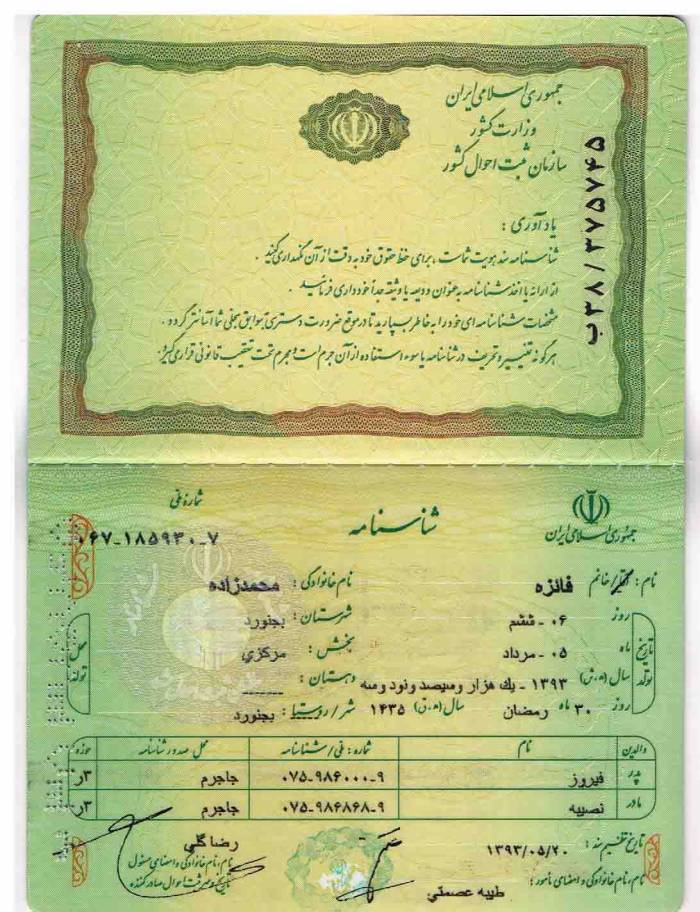 جمهوری اسلامی ایران
وزارت کشور
سازمان ثبت احوال کشور
ب۳۸/۳۷۵۷۴۵
یادآوری :
شناسنامه سند هویت شماست ، برای حفظ حقوق خود به دقت از آن نگهداری کنید .
از ارائه یا اخذ شناسنامه به عنوان ودیعه یا وثیقه جداً خودداری فرمائید .
مشخصات شناسنامه ای خود را به خاطر بسپارید تا در موقع ضرورت دسترسی به سوابق سجلی شما آسانتر گردد .
هر گونه تغییر و تحریف در شناسنامه یا سوء استفاده از آن جرم است و مجرم تحت تعقیب قانونی قرار می گیرد.
جمهوری اسلامی ایران
شناسنامه
شماره ملی
۰۶۷-۱۸۵۹۳۰-۷
نام : آقای/خانم فائزه نام خانوادگی : محمدزاده
تاریخ تولد
روز ۰۶ - ششم شهرستان : بجنورد
ماه ۰۵ - مرداد بخش : مرکزی
سال (ه.ش) ۱۳۹۳ - یك هزار وسیصد ونود وسه دهستان : ------
روز ۳۰ ماه رمضان سال (ه.ق) ۱۴۳۵ شهر/روستا : بجنورد
محل تولد
والدین نام شماره : ملی/شناسنامه محل صدور شناسنامه حوزه
پدر فیروز ۰۷۵-۹۸۶۰۰۰-۹ جاجرم ۳ر
مادر نصیبه ۰۷۵-۹۸۶۸۶۸-۹ جاجرم ۳ر
تاریخ تنظیم سند : ۱۳۹۳/۰۵/۲۰
نام، نام خانوادگی و امضای مأمور : طیبه عصمتی
رضا گلی
نام، نام خانوادگی و امضای مسئول